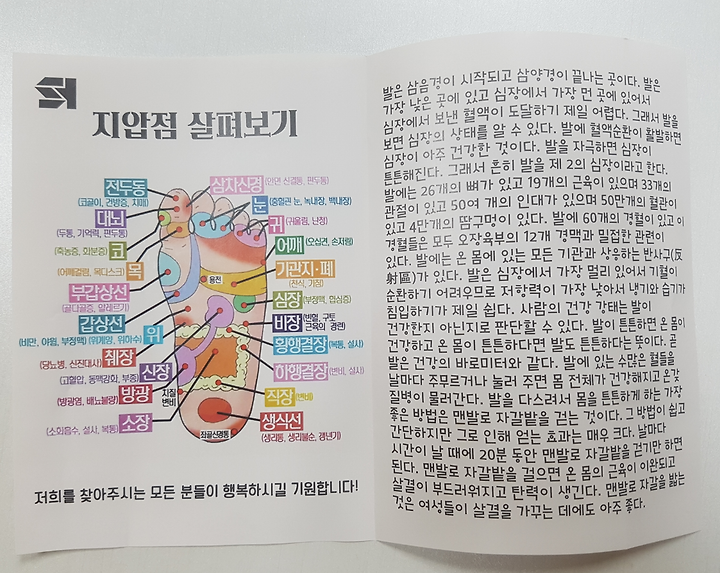 SI
지압점 살펴보기
전두동
(코골이, 건방증, 치매)
대뇌
(두통, 기억력, 편두통)
코
(축농증, 회분증)
목
(어깨결림, 목디스크)
부갑상선
(골다골증, 알레르기)
갑상선
(비만, 야윔, 부정맥)
위
(위계양, 위하수)
췌장
(당뇨병, 신진대사)
신장
(고혈압, 동맥강화, 부종)
방광
(방광염, 배뇨불량)
소장
(소화흡수, 설사, 복통)
삼차신경
(안면 신결통, 편두통)
눈
(충혈관 눈, 녹내장, 백내장)
귀
(귀울림, 난청)
어깨
(오십견, 손저림)
기관지·폐
(천식, 기침)
심장
(부정맥, 협심증)
비장
(빈혈, 구토
근육이 경련)
횡행결장
(복통, 설사)
하행결장
(변비, 설사)
직장
(변비)
생식선
(생리통, 생리불순, 갱년기)
용천
치질
변비
좌골신경통
저희를 찾아주시는 모든 분들이 행복하시길 기원합니다!
발은 삼음경이 시작되고 삼양경이 끝나는 곳이다. 발은
가장 낮은 곳에 있고 심장에서 가장 먼 곳에 있어서
심장에서 보낸 혈액이 도달하기 제일 어렵다. 그래서 발을
보면 심장의 상태를 알 수 있다. 발에 혈액순환이 활발하면
심장이 아주 건강한 것이다. 발을 자극하면 심장이
튼튼해진다. 그래서 흔히 발을 제 2의 심장이라고 한다.
발에는 26개의 뼈가 있고 19개의 근육이 있으며 33개의
관절이 있고 50여 개의 인대가 있으며 50만개의 혈관이
있고 4만개의 땀구멍이 있다. 발에 60개의 경혈이 있고 이
경혈들은 모두 오장육부의 12개 경맥과 밀접한 관련이
있다. 발에는 온 몸에 있는 모든 기관과 상응하는 반사구(反
射區)가 있다. 발은 심장에서 가장 멀리 있어서 기혈이
순환하기 어려우므로 저항력이 가장 낮아서 냉기와 습기가
침입하기가 제일 쉽다. 사람의 건강 강태는 발이
건강한지 아닌지로 판단할 수 있다. 발이 튼튼하면 온 몸이
건강하고 온 몸이 튼튼하다면 발도 튼튼하다는 뜻이다. 곧
발은 건강의 바로미터와 같다. 발에 있는 수많은 혈들을
날마다 주무르거나 눌러 주면 몸 전체가 건강해지고 온갖
질병이 물러간다. 발을 다스려서 몸을 튼튼하게 하는 가장
좋은 방법은 맨발로 자갈밭을 걷는 것이다. 그 방법이 쉽고
간단하지만 그로 인해 얻는 효과는 매우 크다. 날마다
시간이 날 때에 20분 동안 맨발로 자갈밭을 걷기만 하면
된다. 맨발로 자갈밭을 걸으면 온 몸의 근육이 이완되고
살결이 부드러워지고 탄력이 생긴다. 맨발로 자갈을 밟는
것은 여성들이 살결을 가꾸는 데에도 아주 좋다.